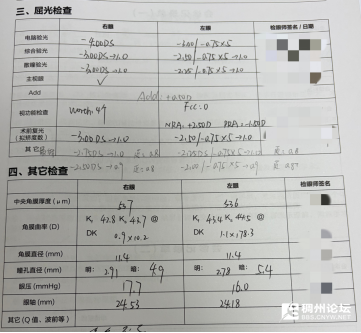 三、屈光检查
右眼 左眼 检眼师签名/日期
电脑验光 -4.00DS -3.00/-0.75×5
综合验光 -3.00DS→1.0 -2.50/-0.75×5→1.0
散瞳验光 -3.00DS→1.0 -2.25/-0.75×5→1.0
主视眼 ✓
Add Add:
视功能检查 Worth: 4 Fcc: 0
NRA: +2.50D PRA:
术前复光 -3.00DS→1.0 -2.50/-0.75×5→1.0
其它
四、其它检查
右眼 左眼 检眼师签名
中央角膜厚度(μm) 537 536
角膜曲率(D) K₁ 42.8 K₂ 43.7 @ K₁ 43.4 K₂ 44.5 @
DK 0.9×10.2 DK 1.1×178.3
角膜直径(mm) 11.4 11.4
瞳孔直径(mm) 明: 2.91 暗: 4.9 明: 2.78 暗: 5.4
眼压(mmHg) 17.7 16.0
眼轴(mm) 24.53 24.18
其它(Q值、波前等)
稠州论坛